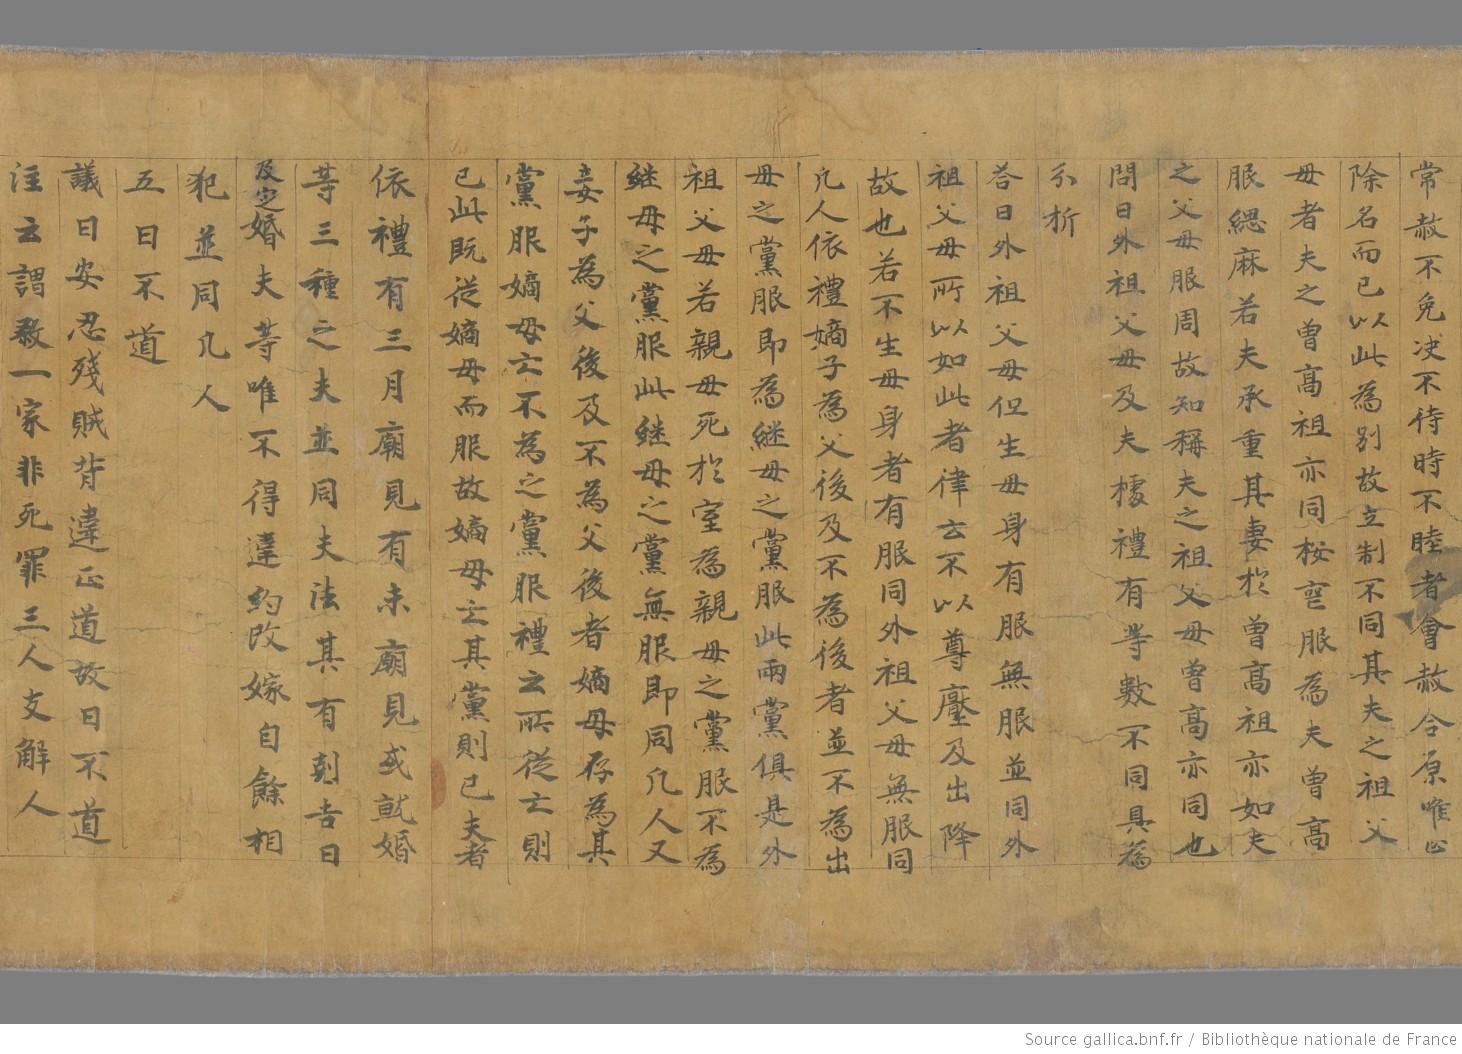 常赦不免决不待時不睦者會赦合原唯止
除名而已以此為別故立制不同其夫之祖父
母者夫之曽高祖亦同桉喪服為夫曽高
服緦麻若夫承重其妻於曽高祖亦如夫
之父母服周故知稱夫之祖父母曽高亦同也
問曰外祖父母及夫據禮有等數不同具為
分析
荅曰外祖父母但生母身有服無服並同外
祖父母所以如此者律云不以尊壓及出降
故也若不生母身者有服同外祖父母無服同
凡人依禮嫡子為父後及不為後者並不為出
母之黨服即為継母之黨服此兩黨俱是外
祖父母若親母死於室為親母之黨服不為
継母之黨服此継母之黨無服即同凡人又
妾子為父後及不為父後者嫡母存為其
黨服嫡母亡不為之黨服禮云所從亡則
已此既從嫡母而服故嫡母亡其黨則已夫者
依禮有三月廟見有未廟見或就婚
等三種之夫並同夫法其有剋吉日
及定婚夫等唯不得違約改嫁自餘相
犯並同凡人
五曰不道
議曰安忍殘賊背違正道故曰不道
注云謂煞一家非死罪三人支解人
Source gallica.bnf.fr / Bibliothèque nationale de France